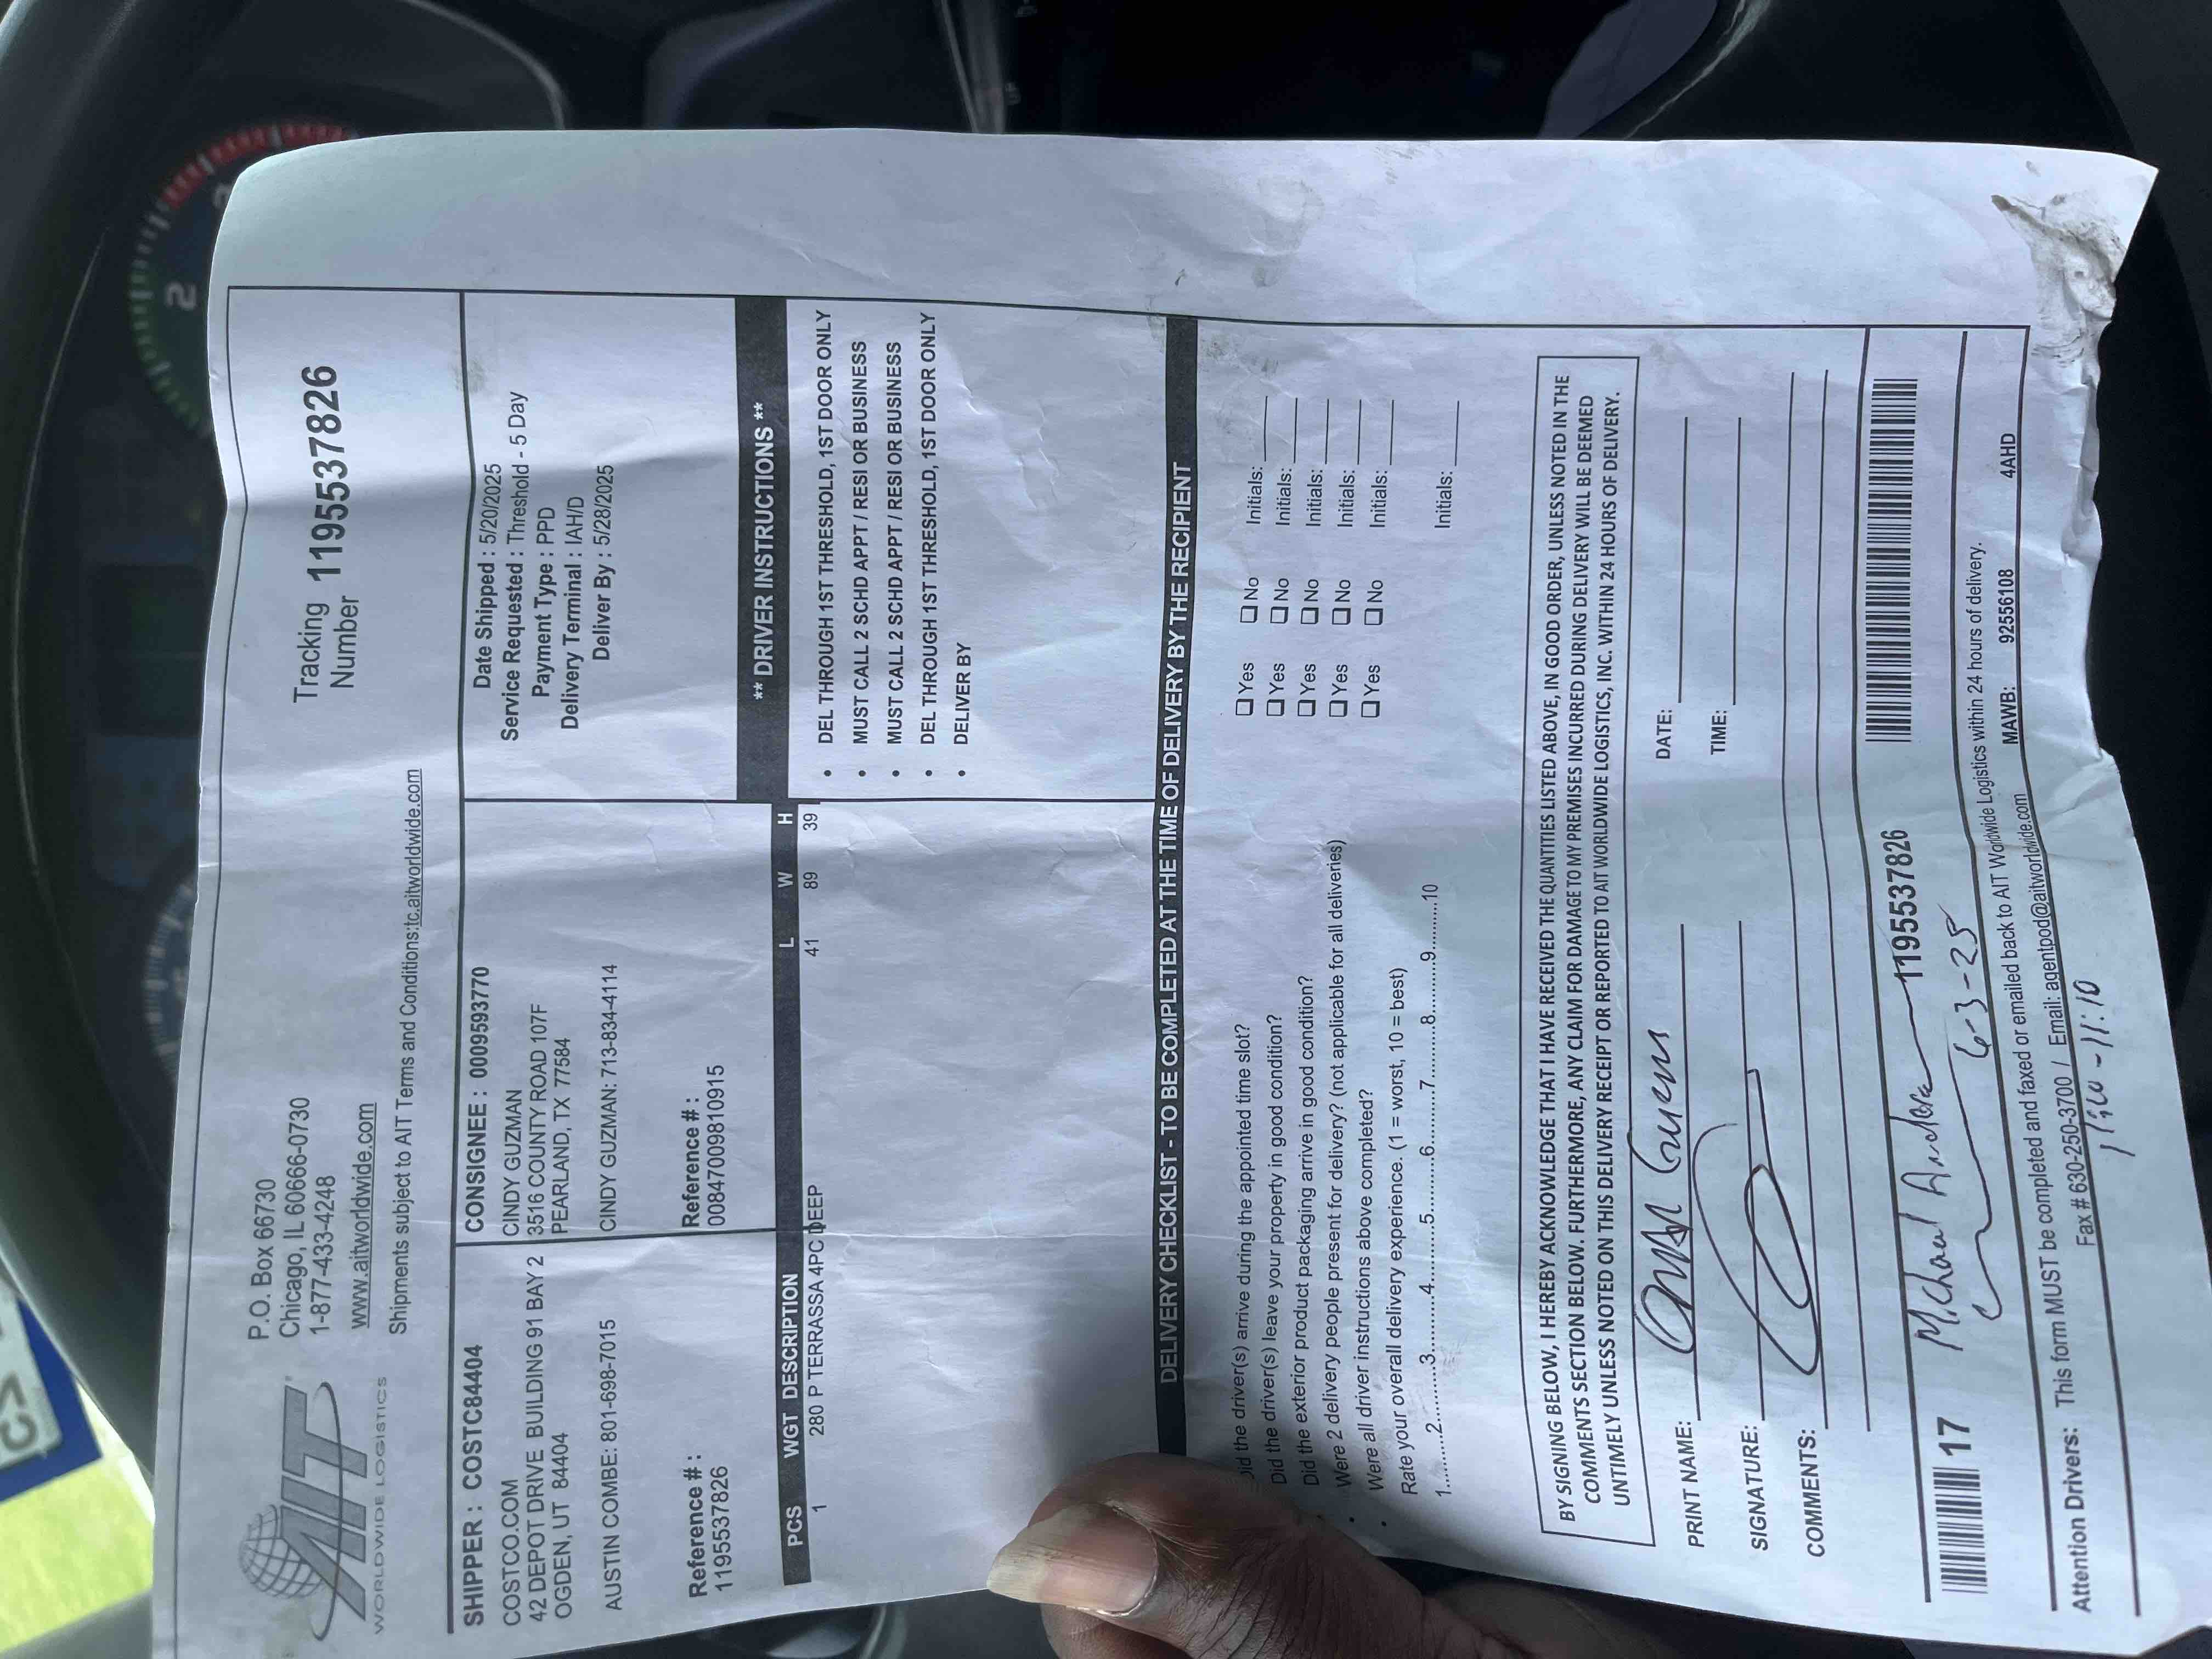 AIT
WORLDWIDE LOGISTICS
P.O. Box 66730
Chicago, IL 60666-0730
1-877-433-4248
www.aitworldwide.com
Shipments subject to AIT Terms and Conditions:tc.aitworldwide.com
Tracking Number 1195537826
SHIPPER : COSTC84404
COSTCO.COM
42 DEPOT DRIVE BUILDING 91 BAY 2
OGDEN, UT 84404
AUSTIN COMBE: 801-698-7015
Reference # :
1195537826
CONSIGNEE : 0009593770
CINDY GUZMAN
3516 COUNTY ROAD 107F
PEARLAND, TX 77584
CINDY GUZMAN: 713-834-4114
Reference # :
00847009810915
Date Shipped : 5/20/2025
Service Requested : Threshold - 5 Day
Payment Type : PPD
Delivery Terminal : IAH/D
Deliver By : 5/28/2025
PCS WGT DESCRIPTION L W H
1 280 P TERRASSA 4PC DEEP 41 89 39
** DRIVER INSTRUCTIONS **
• DEL THROUGH 1ST THRESHOLD, 1ST DOOR ONLY
• MUST CALL 2 SCHD APPT / RESI OR BUSINESS
• MUST CALL 2 SCHD APPT / RESI OR BUSINESS
• DEL THROUGH 1ST THRESHOLD, 1ST DOOR ONLY
• DELIVER BY
DELIVERY CHECKLIST - TO BE COMPLETED AT THE TIME OF DELIVERY BY THE RECIPIENT
Did the driver(s) arrive during the appointed time slot? Yes No Initials:
Did the driver(s) leave your property in good condition? Yes No Initials:
Did the exterior product packaging arrive in good condition? Yes No Initials:
Were 2 delivery people present for delivery? (not applicable for all deliveries) Yes No Initials:
Were all driver instructions above completed? Yes No Initials:
Rate your overall delivery experience. (1 = worst, 10 = best)
1..........2..........3..........4..........5..........6..........7..........8..........9..........10 Initials:
BY SIGNING BELOW, I HEREBY ACKNOWLEDGE THAT I HAVE RECEIVED THE QUANTITIES LISTED ABOVE, IN GOOD ORDER, UNLESS NOTED IN THE
COMMENTS SECTION BELOW. FURTHERMORE, ANY CLAIM FOR DAMAGE TO MY PREMISES INCURRED DURING DELIVERY WILL BE DEEMED
UNTIMELY UNLESS NOTED ON THIS DELIVERY RECEIPT OR REPORTED TO AIT WORLDWIDE LOGISTICS, INC. WITHIN 24 HOURS OF DELIVERY.
PRINT NAME: Omar DATE:
SIGNATURE: TIME:
COMMENTS:
17 Michael 1195537826
6-3-25
Attention Drivers: This form MUST be completed and faxed or emailed back to AIT Worldwide Logistics within 24 hours of delivery.
Fax # 630-250-3700 / Email: agentpod@aitworldwide.com
MAWB: 92556108 4AHD
-11:10
2